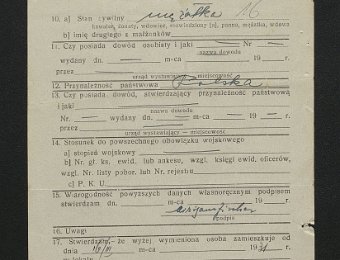 10. a) Stan cywilny mężatka 16
kawaler, żonaty, wdowiec, rozwiedziony (a), panna, mężatka, wdowa
b) imię drugiego z małżonków
11. Czy posiada dowód osobisty i jaki
nazwa dowodu
wydany dn. — m-ca — 19 — r.
przez
urząd wystawiający – miejscowość
12. Przynależność państwowa Polska
13. Czy posiada dowód, stwierdzający przynależność państwową
i jaki
nazwa dowodu
Nr. — wydany dn. — m-ca — 19 — r.
przez
urząd wystawiający — miejscowość
14. Stosunek do powszechnego obowiązku wojskowego
a) stopień wojskowy
b) Nr. gł. ks. ewid. lub ankesu, wzgl. księgi ewid. oficerów,
wzgl. Nr. listy pobor. lub Nr. rejestru
c) P. K. U.
15. Wiarogodność powyższych danych własnoręcznym podpisem
stwierdzam dn. m-ca 19 r.
podpis
16. Uwagi
17. Stwierdzam, że wyżej wymieniona osoba zamieszkuje od
dnia 193 r.